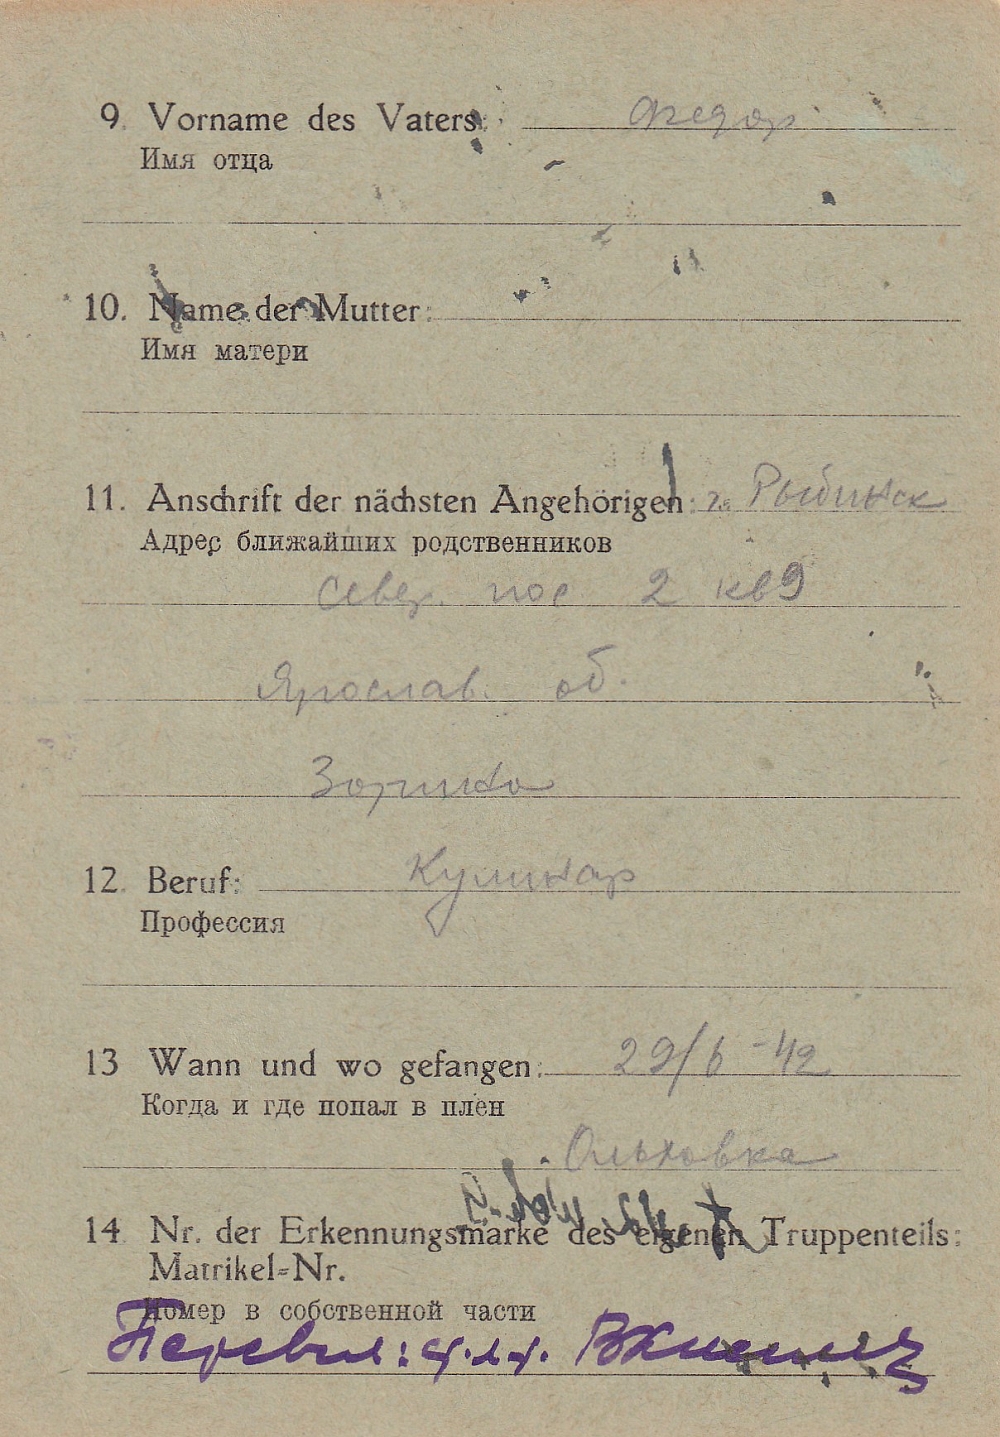 9. Vorname des Vaters: Федор
Имя отца
10. Name der Mutter:
Имя матери
11. Anschrift der nächsten Angehörigen: г. Рыбинск
Адрес ближайших родственников
Север. пос 2 кв 9
Ярослав. об.
Зорина
12. Beruf: Кулинар
Профессия
13 Wann und wo gefangen: 29/6-42
Когда и где попал в плен
Ольховка
14 Nr. der Erkennungsmarke des eigenen Truppenteils:
Matrikel=Nr.
Номер в собственной части
Перевел: